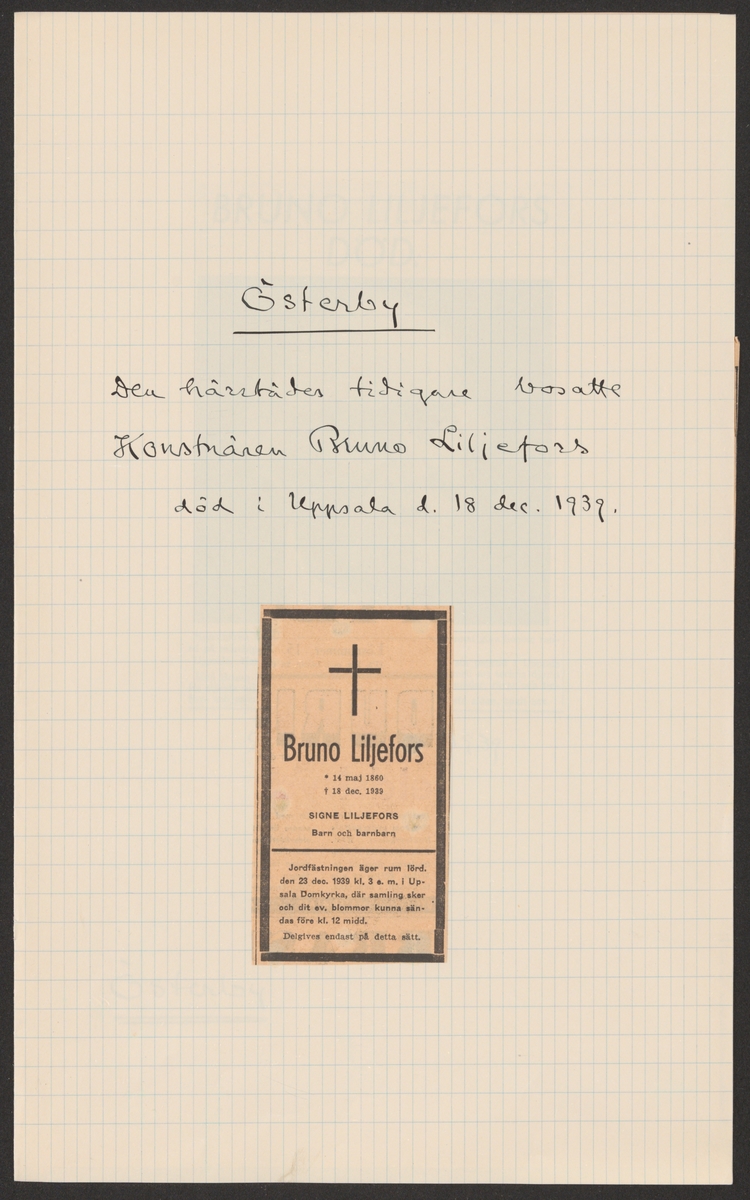 Österby
Den härstädes tidigare bosatte
Konstnären Bruno Liljefors
död i Uppsala d. 18 dec. 1939.
Bruno Liljefors
* 14 maj 1860
† 18 dec. 1939
SIGNE LILJEFORS
Barn och barnbarn
Jordfästningen äger rum lörd.
den 23 dec. 1939 kl. 3 e. m. i Up-
sala Domkyrka, där samling sker
och dit ev. blommor kunna sän-
das före kl. 12 midd.
Delgives endast på detta sätt.